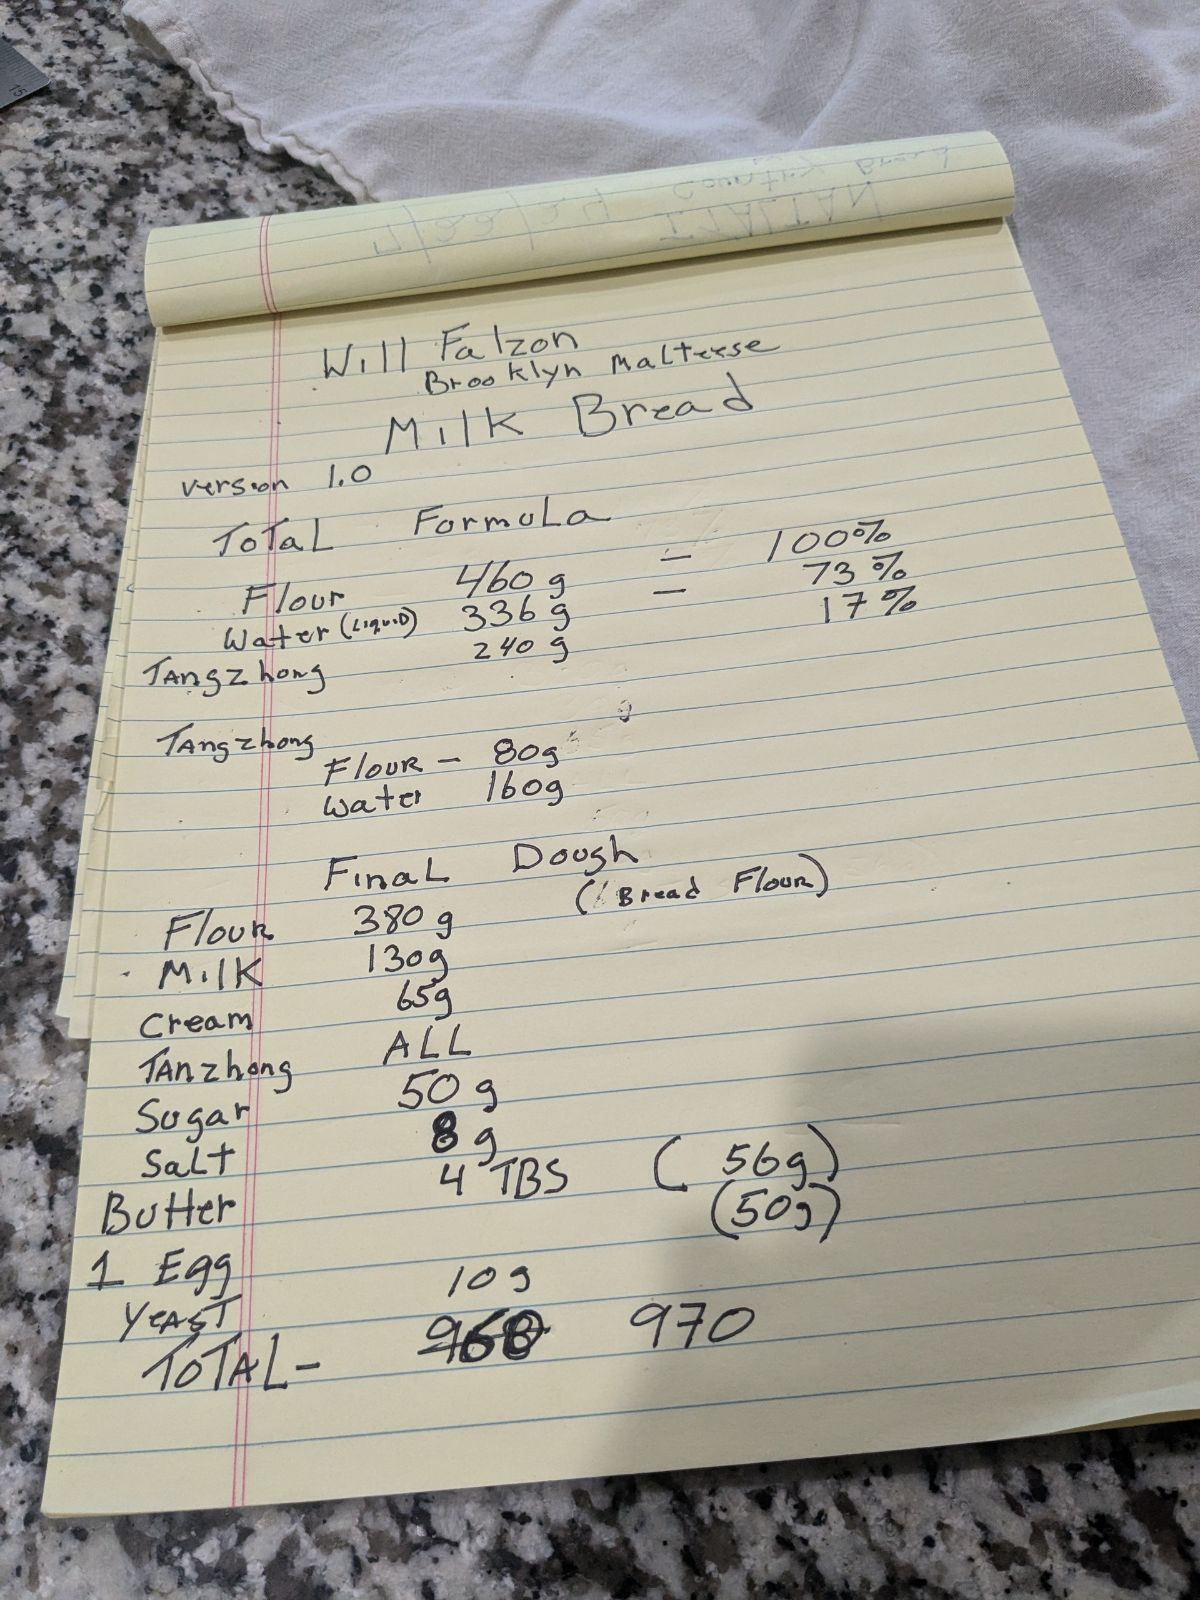 7/22/24 ITALIAN
Country Bread
Will Falzon
Brooklyn Malteese
Milk Bread
version 1.0
Total Formula
Flour 460g - 100%
Water (Liquid) 336g - 73%
Tangzhong 240g 17%
Tangzhong
Flour - 80g
Water 160g
Final Dough
Flour 380g (Bread Flour)
Milk 130g
Cream 65g
Tanzhong ALL
Sugar 50g
Salt 8g
Butter 4 TBS (56g)
1 Egg (50g)
Yeast 10g
Total - 968 970
15